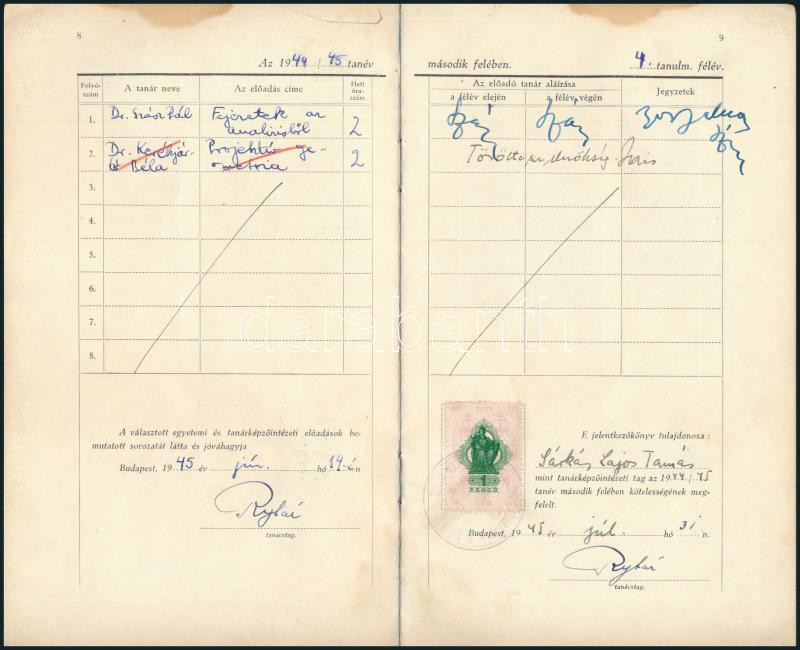 8
Az 1944/45 tanév
Folyó-
szám
A tanár neve
Az előadás címe
Heti
óra-
szám
1.
Dr. Szász Pál
Fejezetek az
analízisből
2
2.
Dr. Kerékjár-
tó Béla
Projektív ge-
ometria
2
3.
4.
5.
6.
7.
8.
A választott egyetemi és tanárképzőintézeti előadások be-
mutatott sorozatát látta és jóváhagyja
Budapest, 1945 év jún. hó 14-én
tanácstag.
9
második felében.
4. tanulm. félév.
Az előadó tanár aláírása
a félév elején
a félév végén
Jegyzetek
Törölte az elnökség.
1
PENGŐ
E jelentkezőkönyv tulajdonosa:
Sárközy Lajos Tamás
mint tanárképzőintézeti tag az 1944/45
tanév második felében kötelességének meg-
felelt.
Budapest, 1945 év júl. hó 31 n.
tanácstag.
darabanth